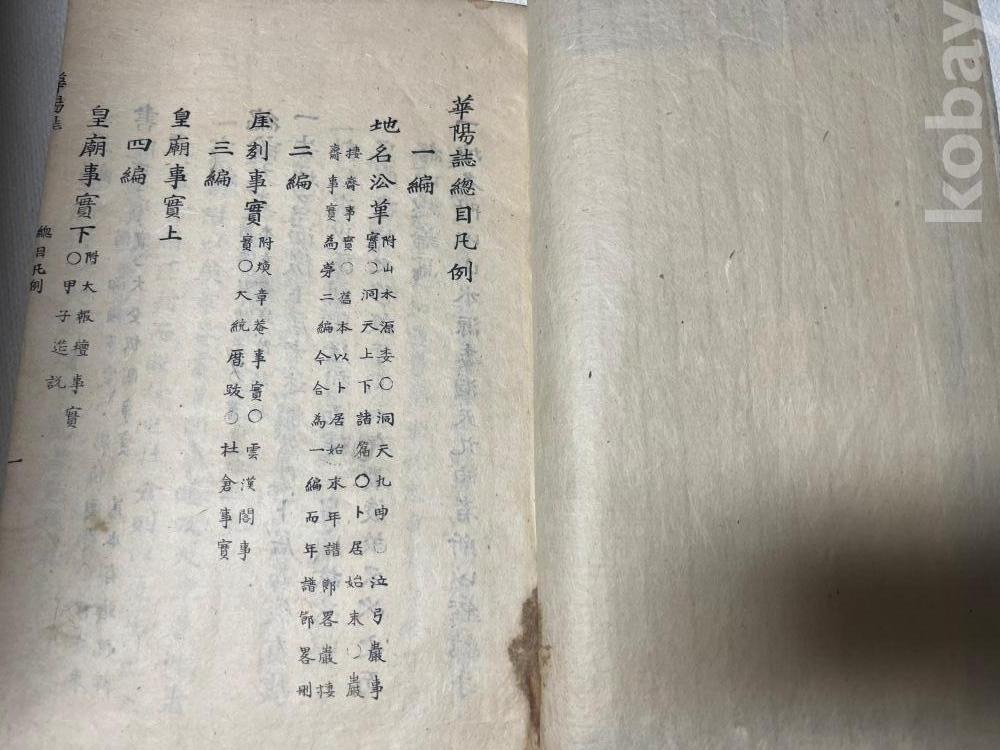 華陽誌總目凡例
一編
地名㳂革 附山水源委〇洞天九曲〇泣弓巖事
實〇洞天上下諸篇〇卜居始末〇巖
棲齋事實〇舊本以卜居始末年譜節畧巖棲
齋事實為第二編今合為一編而年譜節畧刪
二編
厓刻事實 附煥章菴事實〇雲漢閣事
實〇大統曆跋〇社倉事實
三編
皇廟事實上
四編
皇廟事實下 附大報壇事實
〇甲子造説
華陽誌 總目凡例 一
kobay